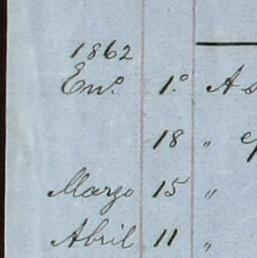 1862
En.º 1.º A s
18 "
Marzo 15 "
Abril 11 "